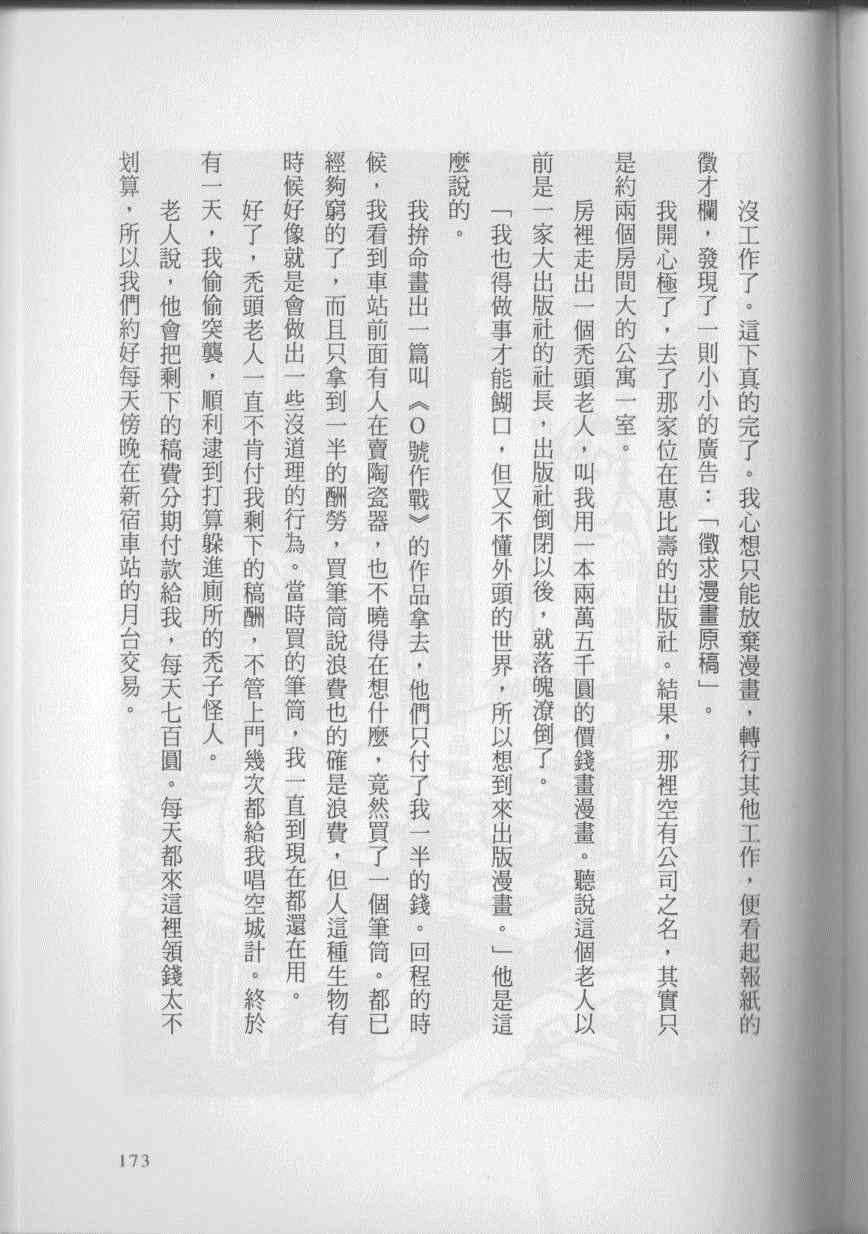 沒工作了。這下真的完了。我心想只能放棄漫畫，轉行其他工作，便看起報紙的
徵才欄，發現了一則小小的廣告：「徵求漫畫原稿」。
我開心極了，去了那家位在惠比壽的出版社。結果，那裡空有公司之名，其實只
是約兩個房間大的公寓一室。
房裡走出一個禿頭老人，叫我用一本兩萬五千圓的價錢畫漫畫。聽說這個老人以
前是一家大出版社的社長，出版社倒閉以後，就落魄潦倒了。
「我也得做事才能餬口，但又不懂外頭的世界，所以想到來出版漫畫。」他是這
麼說的。
我拚命畫出一篇叫《O號作戰》的作品拿去，他們只付了我一半的錢。回程的時
候，我看到車站前面有人在賣陶瓷器，也不曉得在想什麼，竟然買了一個筆筒。都已
經夠窮的了，而且只拿到一半的酬勞，買筆筒說浪費也的確是浪費，但人這種生物有
時候好像就是會做出一些沒道理的行為。當時買的筆筒，我一直到現在都還在用。
好了，禿頭老人一直不肯付我剩下的稿酬，不管上門幾次都給我唱空城計。終於
有一天，我偷偷突襲，順利逮到打算躲進廁所的禿子怪人。
老人說，他會把剩下的稿費分期付款給我，每天七百圓。每天都來這裡領錢太不
划算，所以我們約好每天傍晚在新宿車站的月台交易。
173